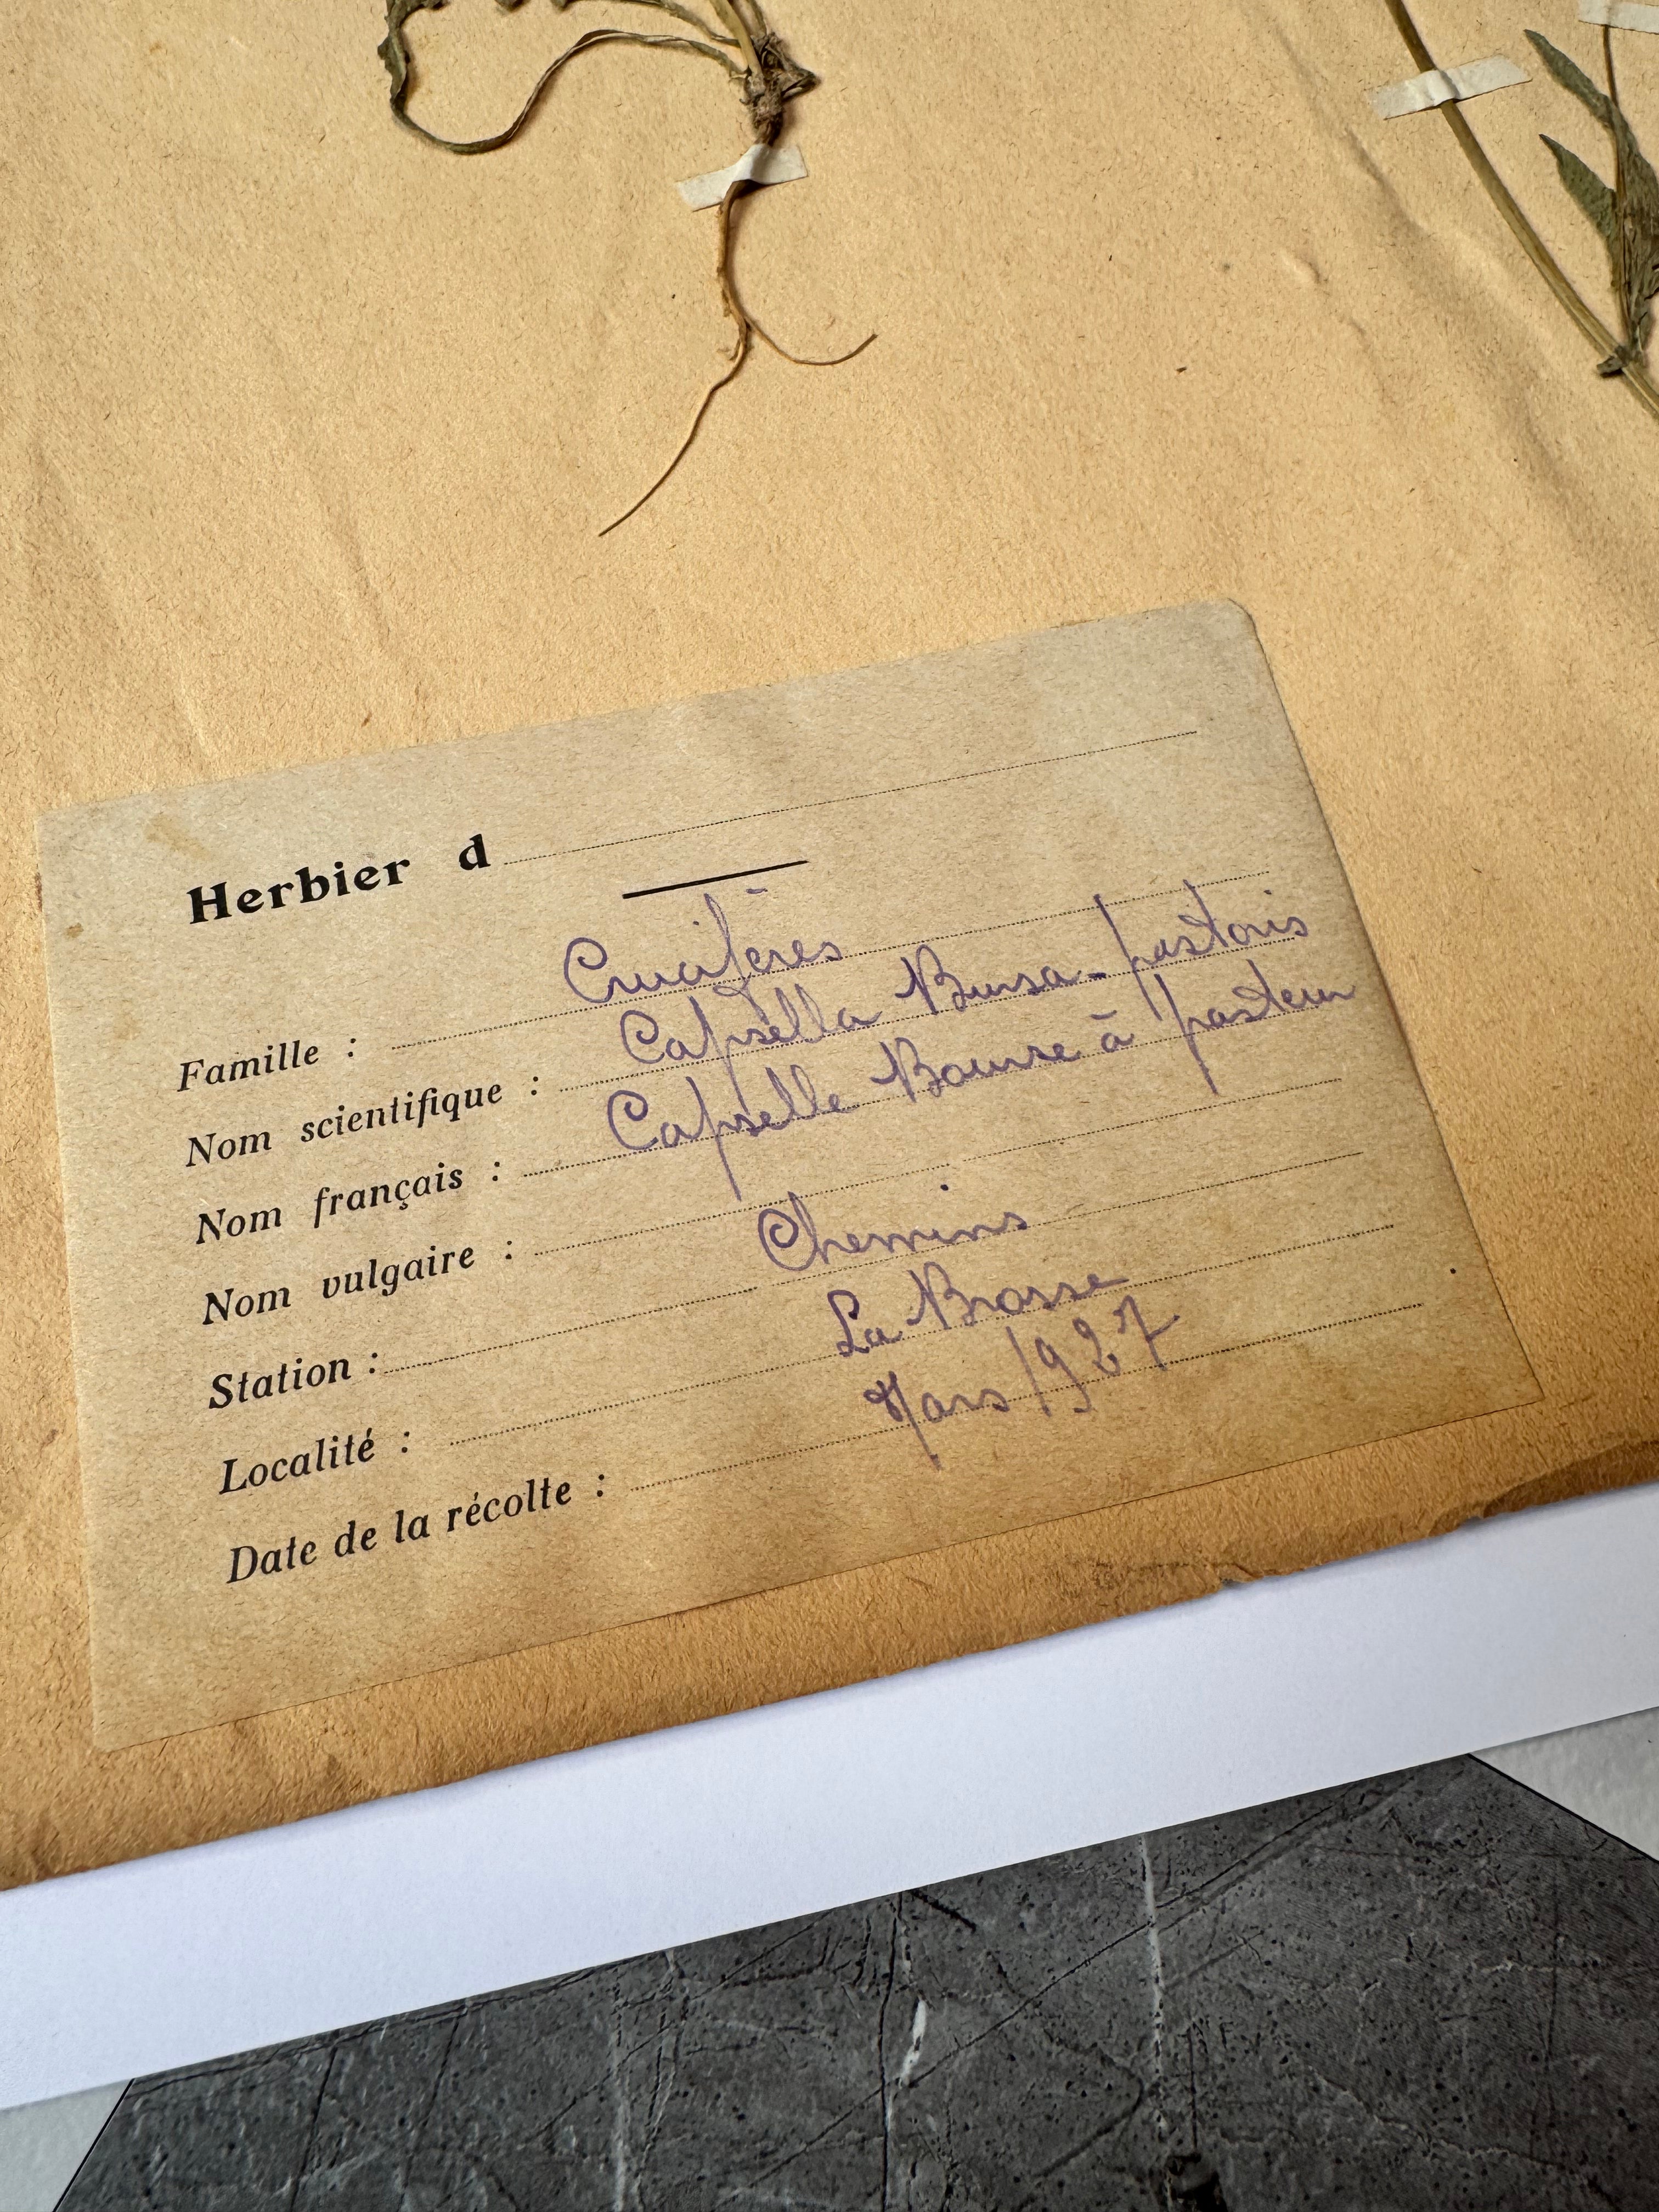 Herbier d
Famille : Crucifères
Nom scientifique : Capsella Bursa-pastoris
Nom français : Capselle Bourse à pasteur
Nom vulgaire :
Station : Chemins
Localité : La Brosse
Date de la récolte : Mars 1927